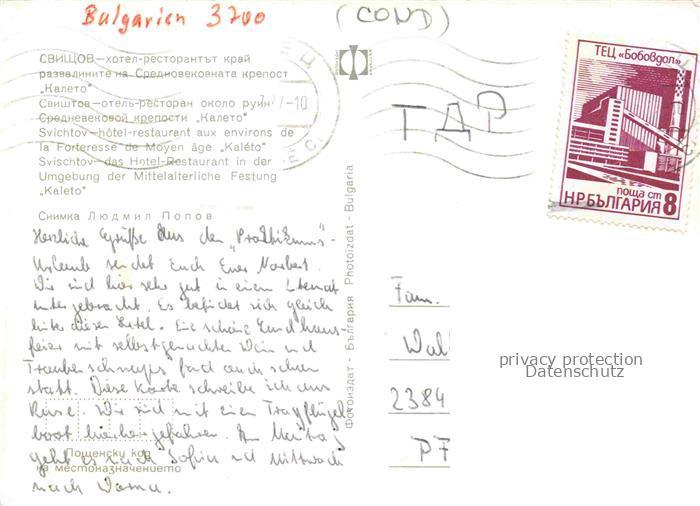 Bulgarien 3700
(COND)
СВИЩОВ—хотел-ресторантът край
развалините на Средновековната крепост
„Калето"
Свиштов—отель-ресторан около руин
Средневековой крепости „Калето"
Svichtov—hôtel-restaurant aux environs de
la Forteresse de Moyen âge „Kaléto"
Svischtov—das Hotel-Restaurant in der
Umgebung der Mittelalterliche Festung
„Kaleto"
Снимка Людмил Попов
Herzliche Grüße aus dem „Praktikums"-
Urlaub sendet Euch Euer Norbert.
Wir sind hier sehr gut in einem Internat
untergebracht. Es befindet sich gleich
hinter diesem Hotel. Eine schöne
feier mit selbstgemachten Wein und
Traubenschnaps fand auch schon
statt. Diese Karte schreibe ich aus
Ruse. Wir sind mit einem Tragflügel-
boot hierher gefahren. Am Montag
geht es nach Sofia und Mittwoch
nach Varna.
Пощенски код
на местоназначението
Фотоиздат - България Photoizdat - Bulgaria
ГДР
ТЕЦ «Бобовдол»
поща ст 8
НРБЪЛГАРИЯ
Fam.
Wal
2384
privacy protection
Datenschutz